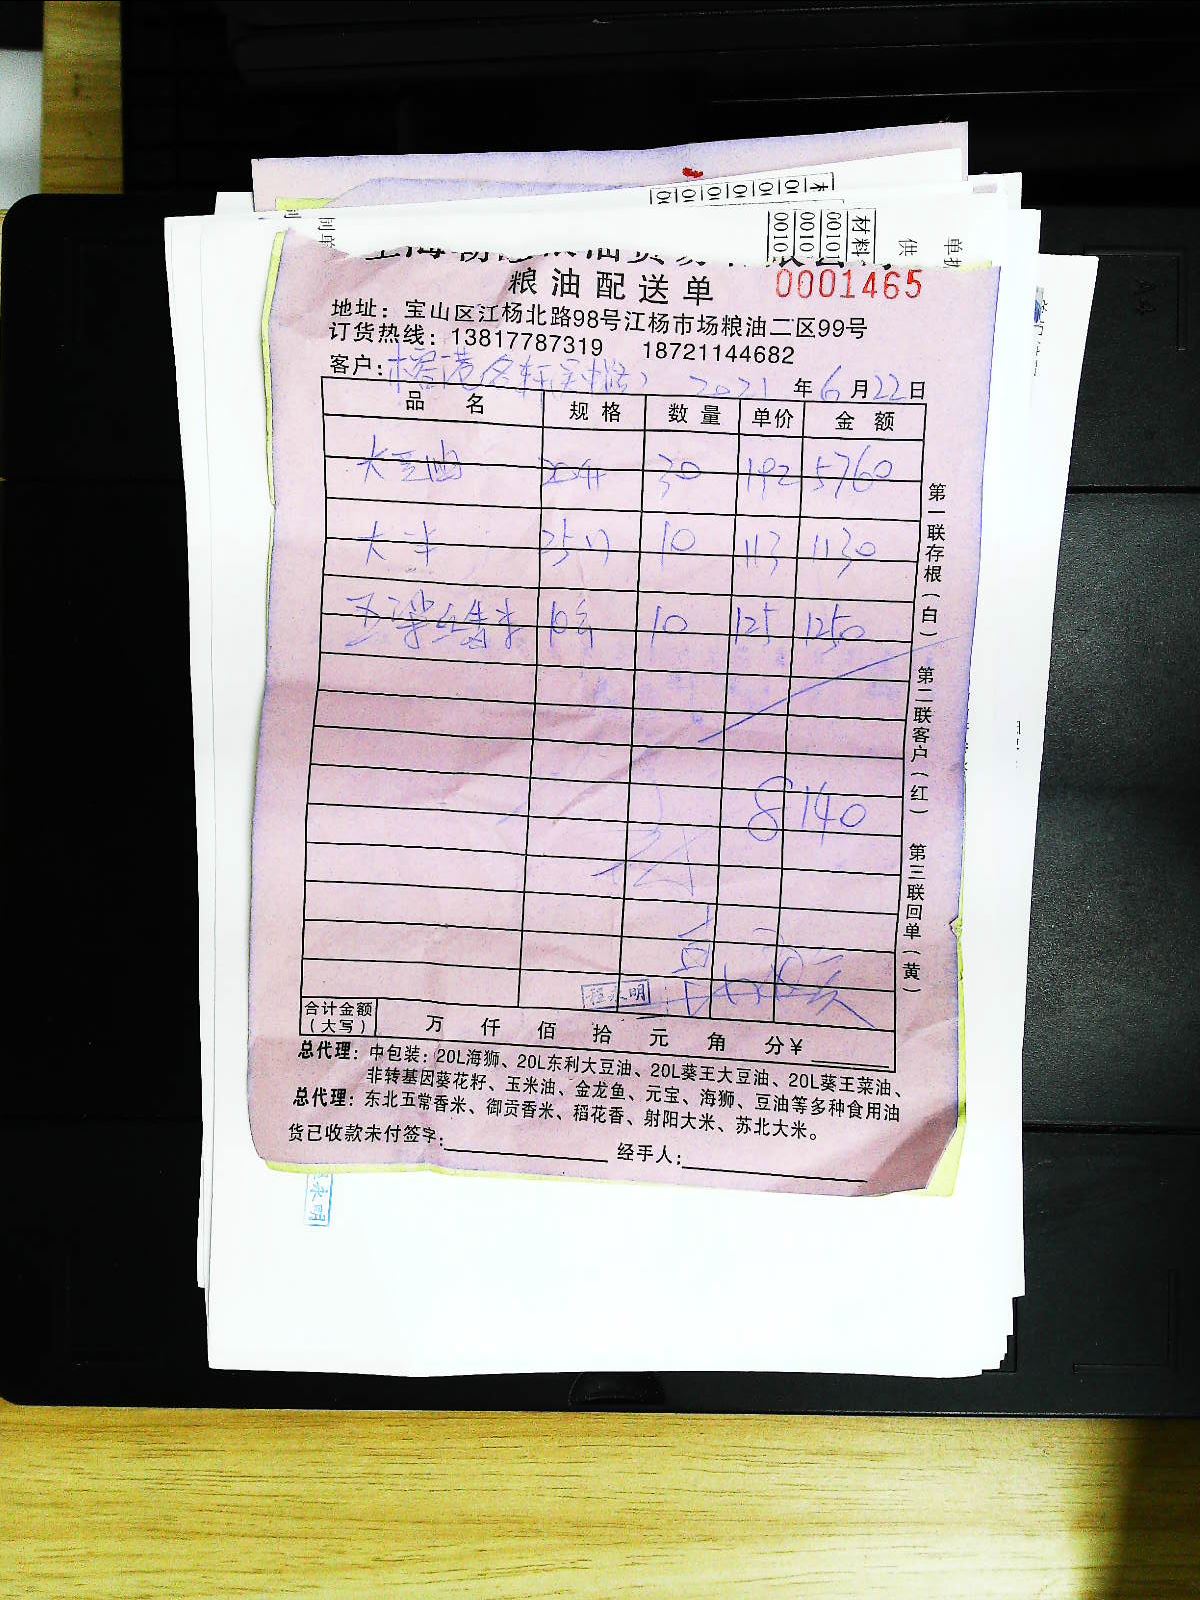 粮油配送单 0001465
地址：宝山区江杨北路98号江杨市场粮油二区99号
订货热线：13817787319 18721144682
客户： 2021年6月22日
品 名 规 格 数 量 单价 金 额
大豆油 30 192 5760
大米 25 10 113 1130
10 125 1250
8140
程永明
合计金额（大写） 万 仟 佰 拾 元 角 分￥
总代理：中包装：20L海狮、20L东利大豆油、20L葵王大豆油、20L葵王菜油、
非转基因葵花籽、玉米油、金龙鱼、元宝、海狮、豆油等多种食用油
总代理：东北五常香米、御贡香米、稻花香、射阳大米、苏北大米。
货已收款未付签字： 经手人：
第一联存根（白） 第二联客户（红） 第三联回单（黄）
材料
00101
单
供
永明